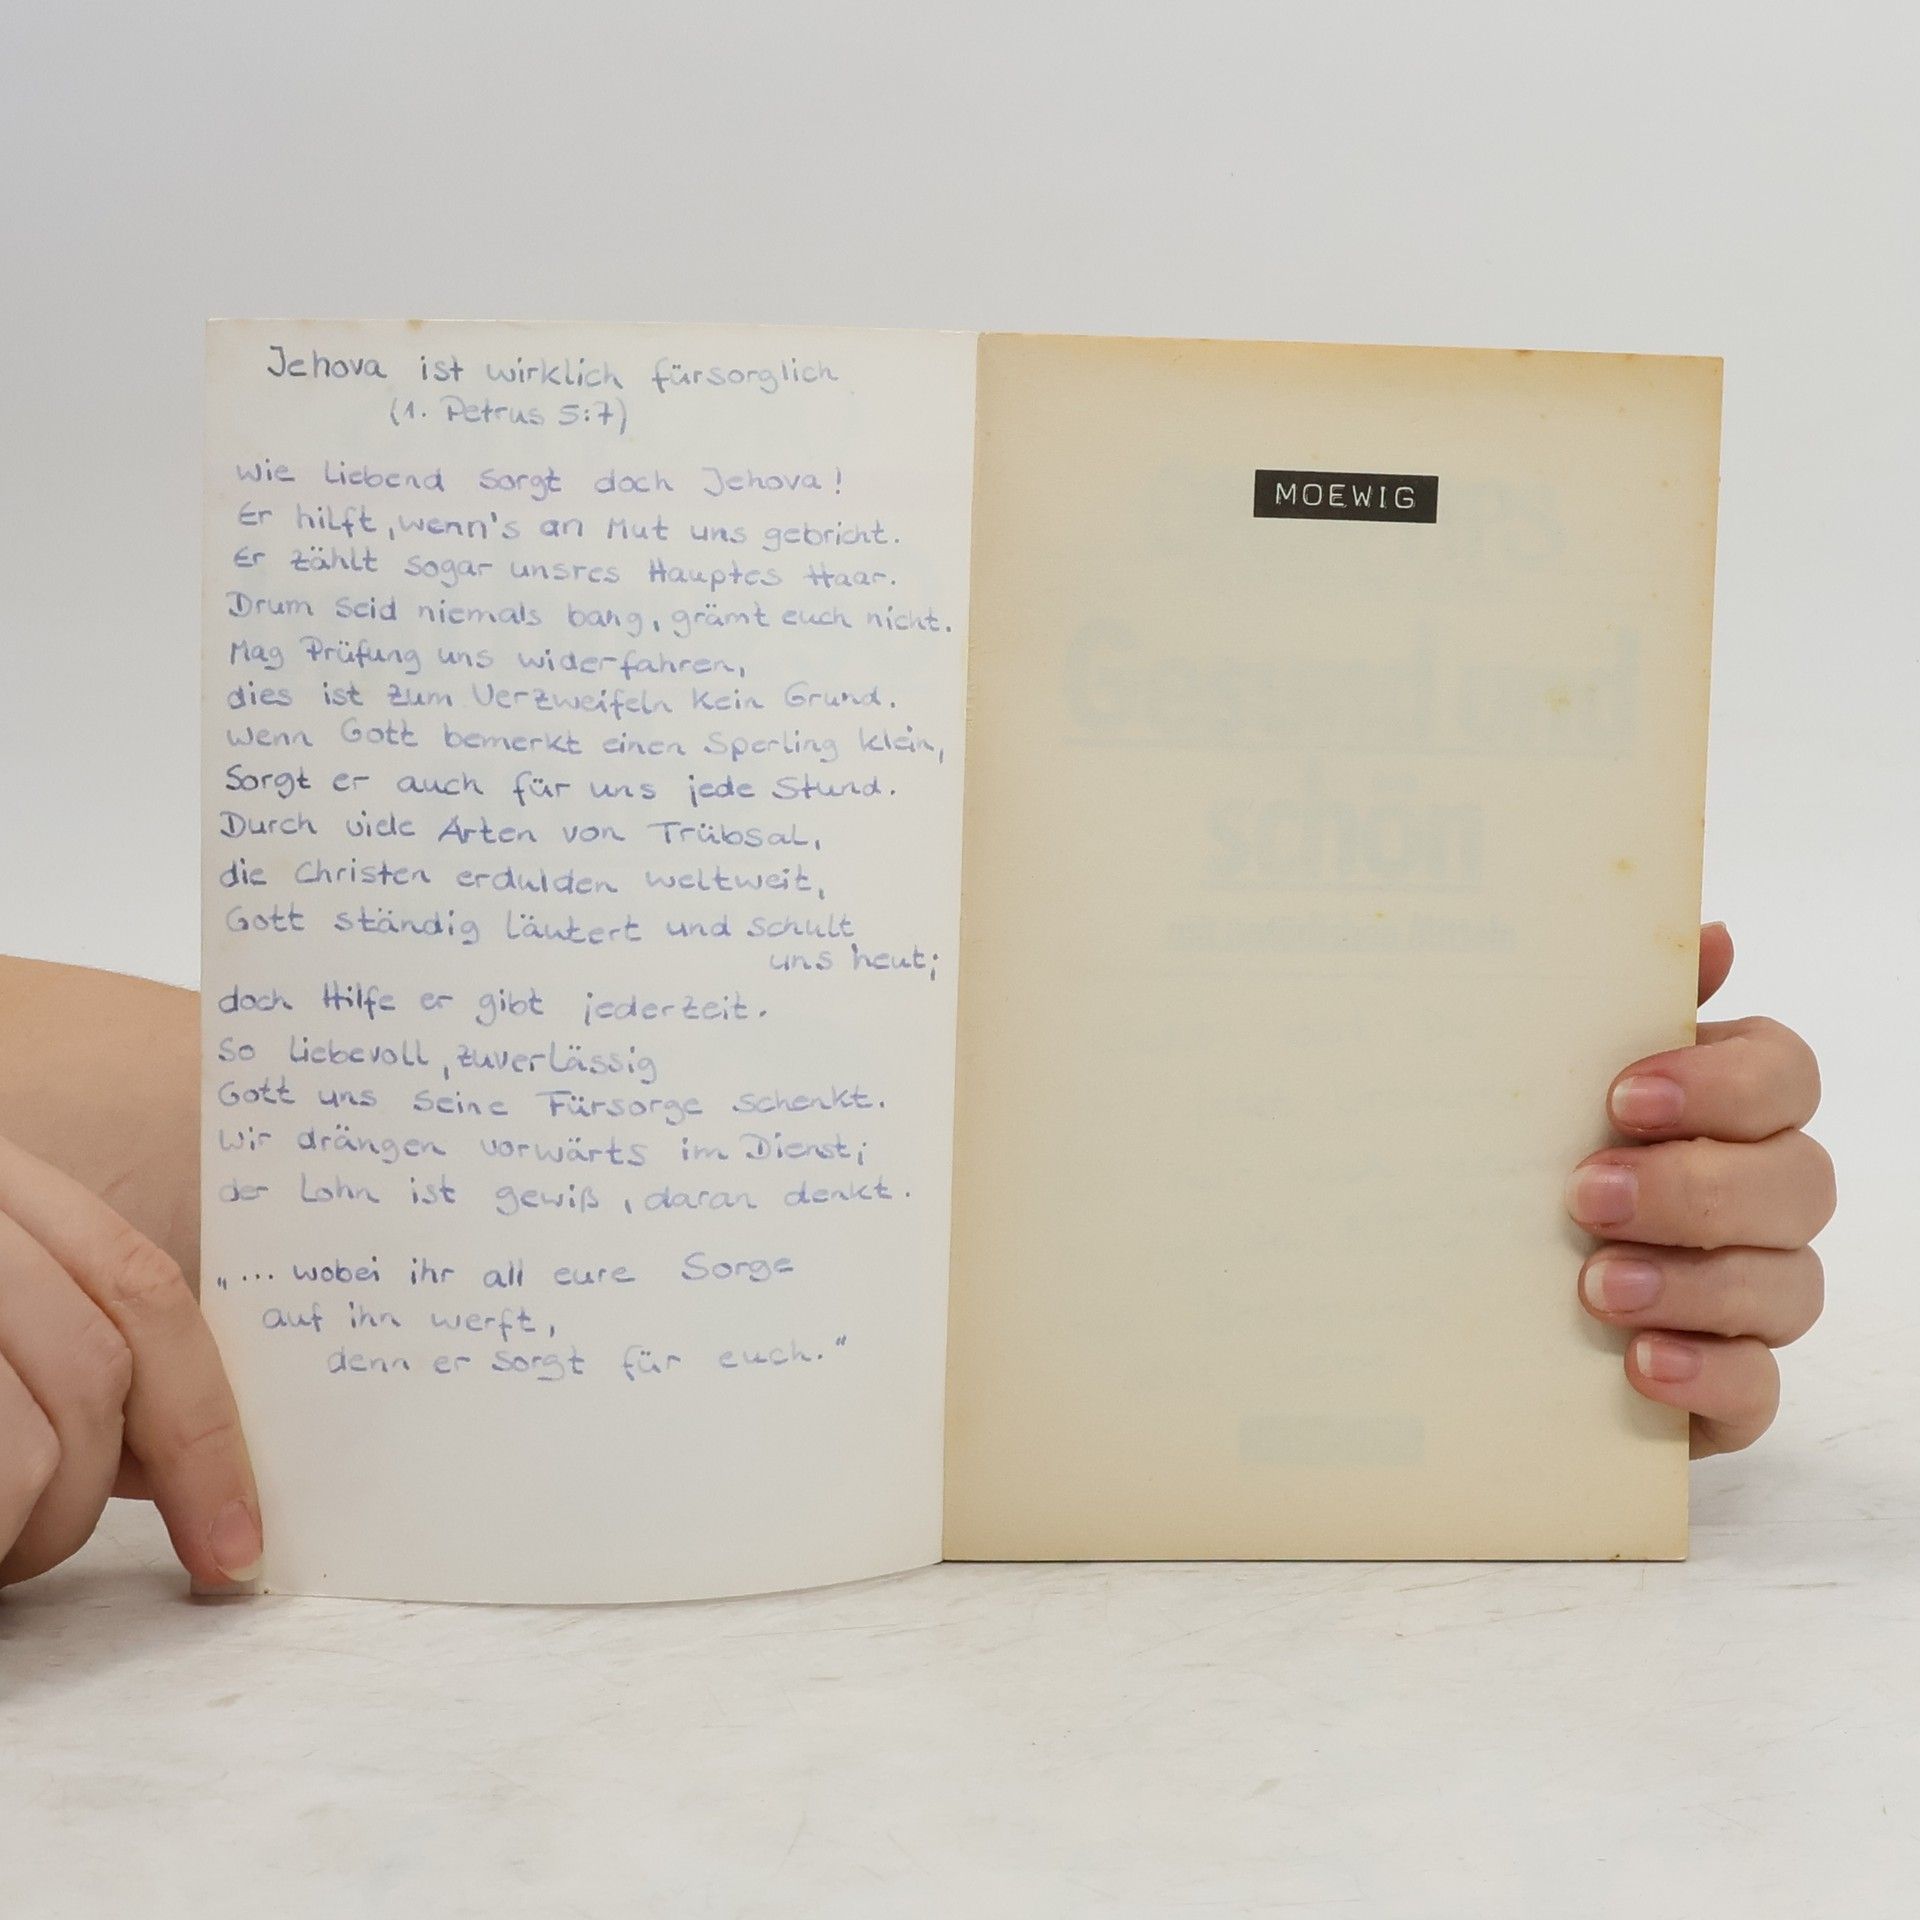 Jehova ist wirklich fürsorglich
(1. Petrus 5:7)
Wie liebend sorgt doch Jehova!
Er hilft, wenn's an Mut uns gebricht.
Er zählt sogar unsres Hauptes Haar.
Drum seid niemals bang, grämt euch nicht.
Mag Prüfung uns widerfahren,
dies ist zum Verzweifeln kein Grund.
Wenn Gott bemerkt einen Sperling klein,
Sorgt er auch für uns jede Stund.
Durch viele Arten von Trübsal,
die Christen erdulden weltweit,
Gott ständig läutert und schult
uns heut;
doch Hilfe er gibt jederzeit.
So liebevoll, zuverlässig
Gott uns seine Fürsorge schenkt.
Wir drängen vorwärts im Dienst;
der Lohn ist gewiß, daran denkt.
„... wobei ihr all eure Sorge
auf ihn werft,
denn er sorgt für euch.“
MOEWIG